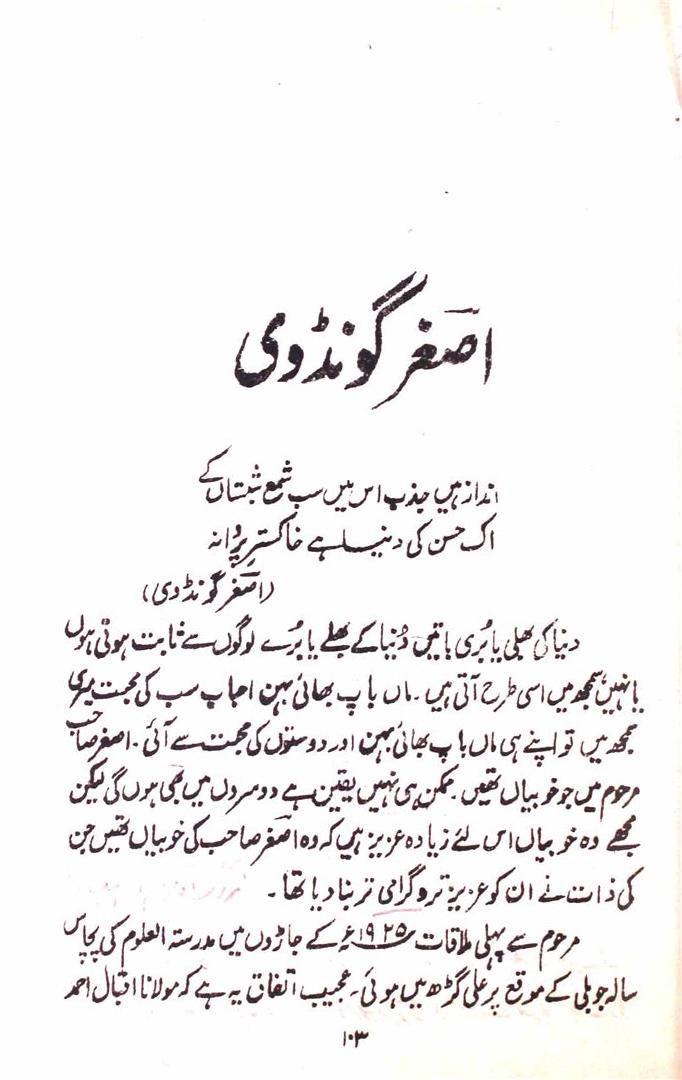 اصغر گونڈوی
انداز ہیں جذب اس میں سب شمع شبستاں کے
اک حسن کی دنیا ہے خاکستر پروانہ
(اصغر گونڈوی)
دنیا کی بھلی یا بُری باتیں دُنیا کے بھلے یا بُرے لوگوں سے ثابت ہوتی ہوں
یا نہیں، سمجھ میں اسی طرح آتی ہیں۔ ماں باپ بھائی بہن احباب سب کی محبت میری
سمجھ میں تو اپنے ہی ماں باپ بھائی بہن اور دوستوں کی محبت سے آئی۔ اصغر صاحب
مرحوم میں جو خوبیاں تھیں۔ ممکن ہی نہیں یقین ہے دوسروں میں بھی ہوں گی لیکن
مجھے وہ خوبیاں اس لئے زیادہ عزیز ہیں کہ وہ اصغر صاحب کی خوبیاں تھیں جن
کی ذات نے ان کو عزیز تر و گرامی تر بنا دیا تھا۔
مرحوم سے پہلی ملاقات ۱۹۲۵ء کے جاڑوں میں مدرستہ العلوم کی پچاس
سالہ جوبلی کے موقع پر علی گڑھ میں ہوئی۔ عجیب اتفاق یہ ہے کہ مولانا اقبال احمد
۱۰۳